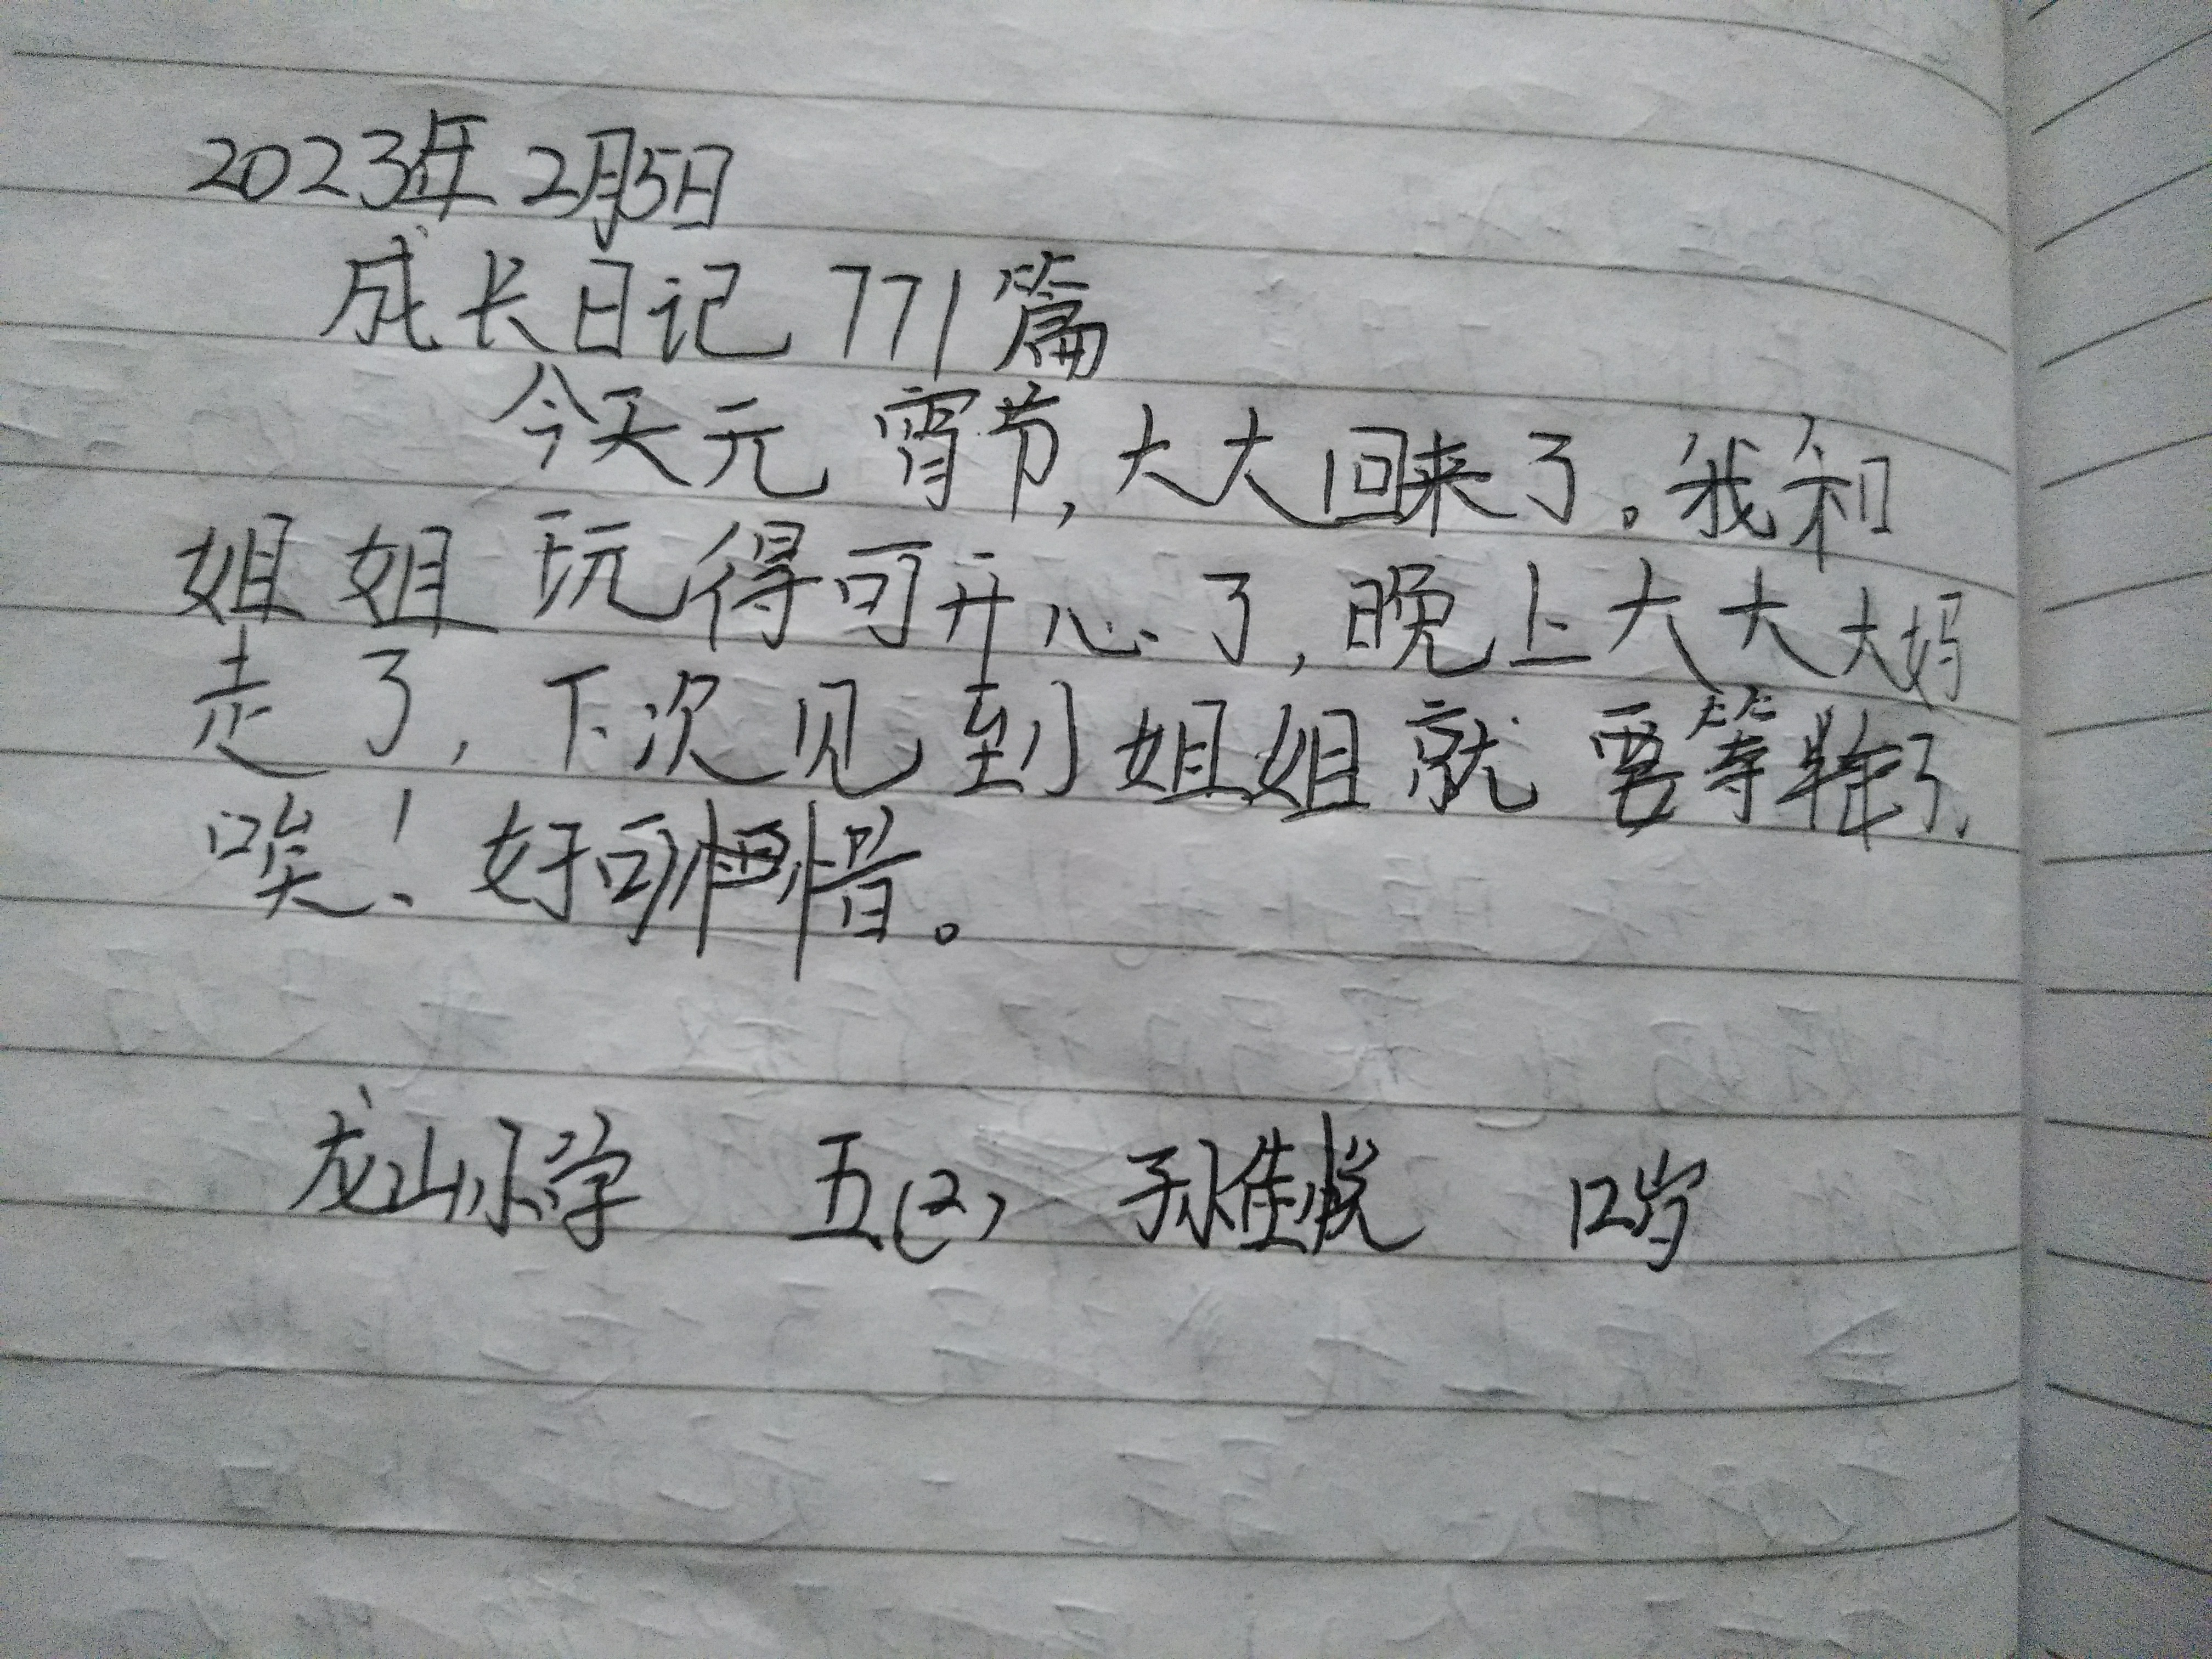 2023年2月5日
成长日记771篇
今天元宵节,大大回来了。我和
姐姐玩得可开心了,晚上大大大妈
走了,下次见到姐姐就要等半年了,
唉!好可惜。
龙山小学 五(2) 孙佳悦 12岁